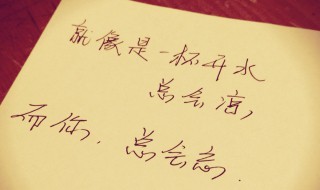 就像是一杯开水
总会凉,
而你. 总会忘.